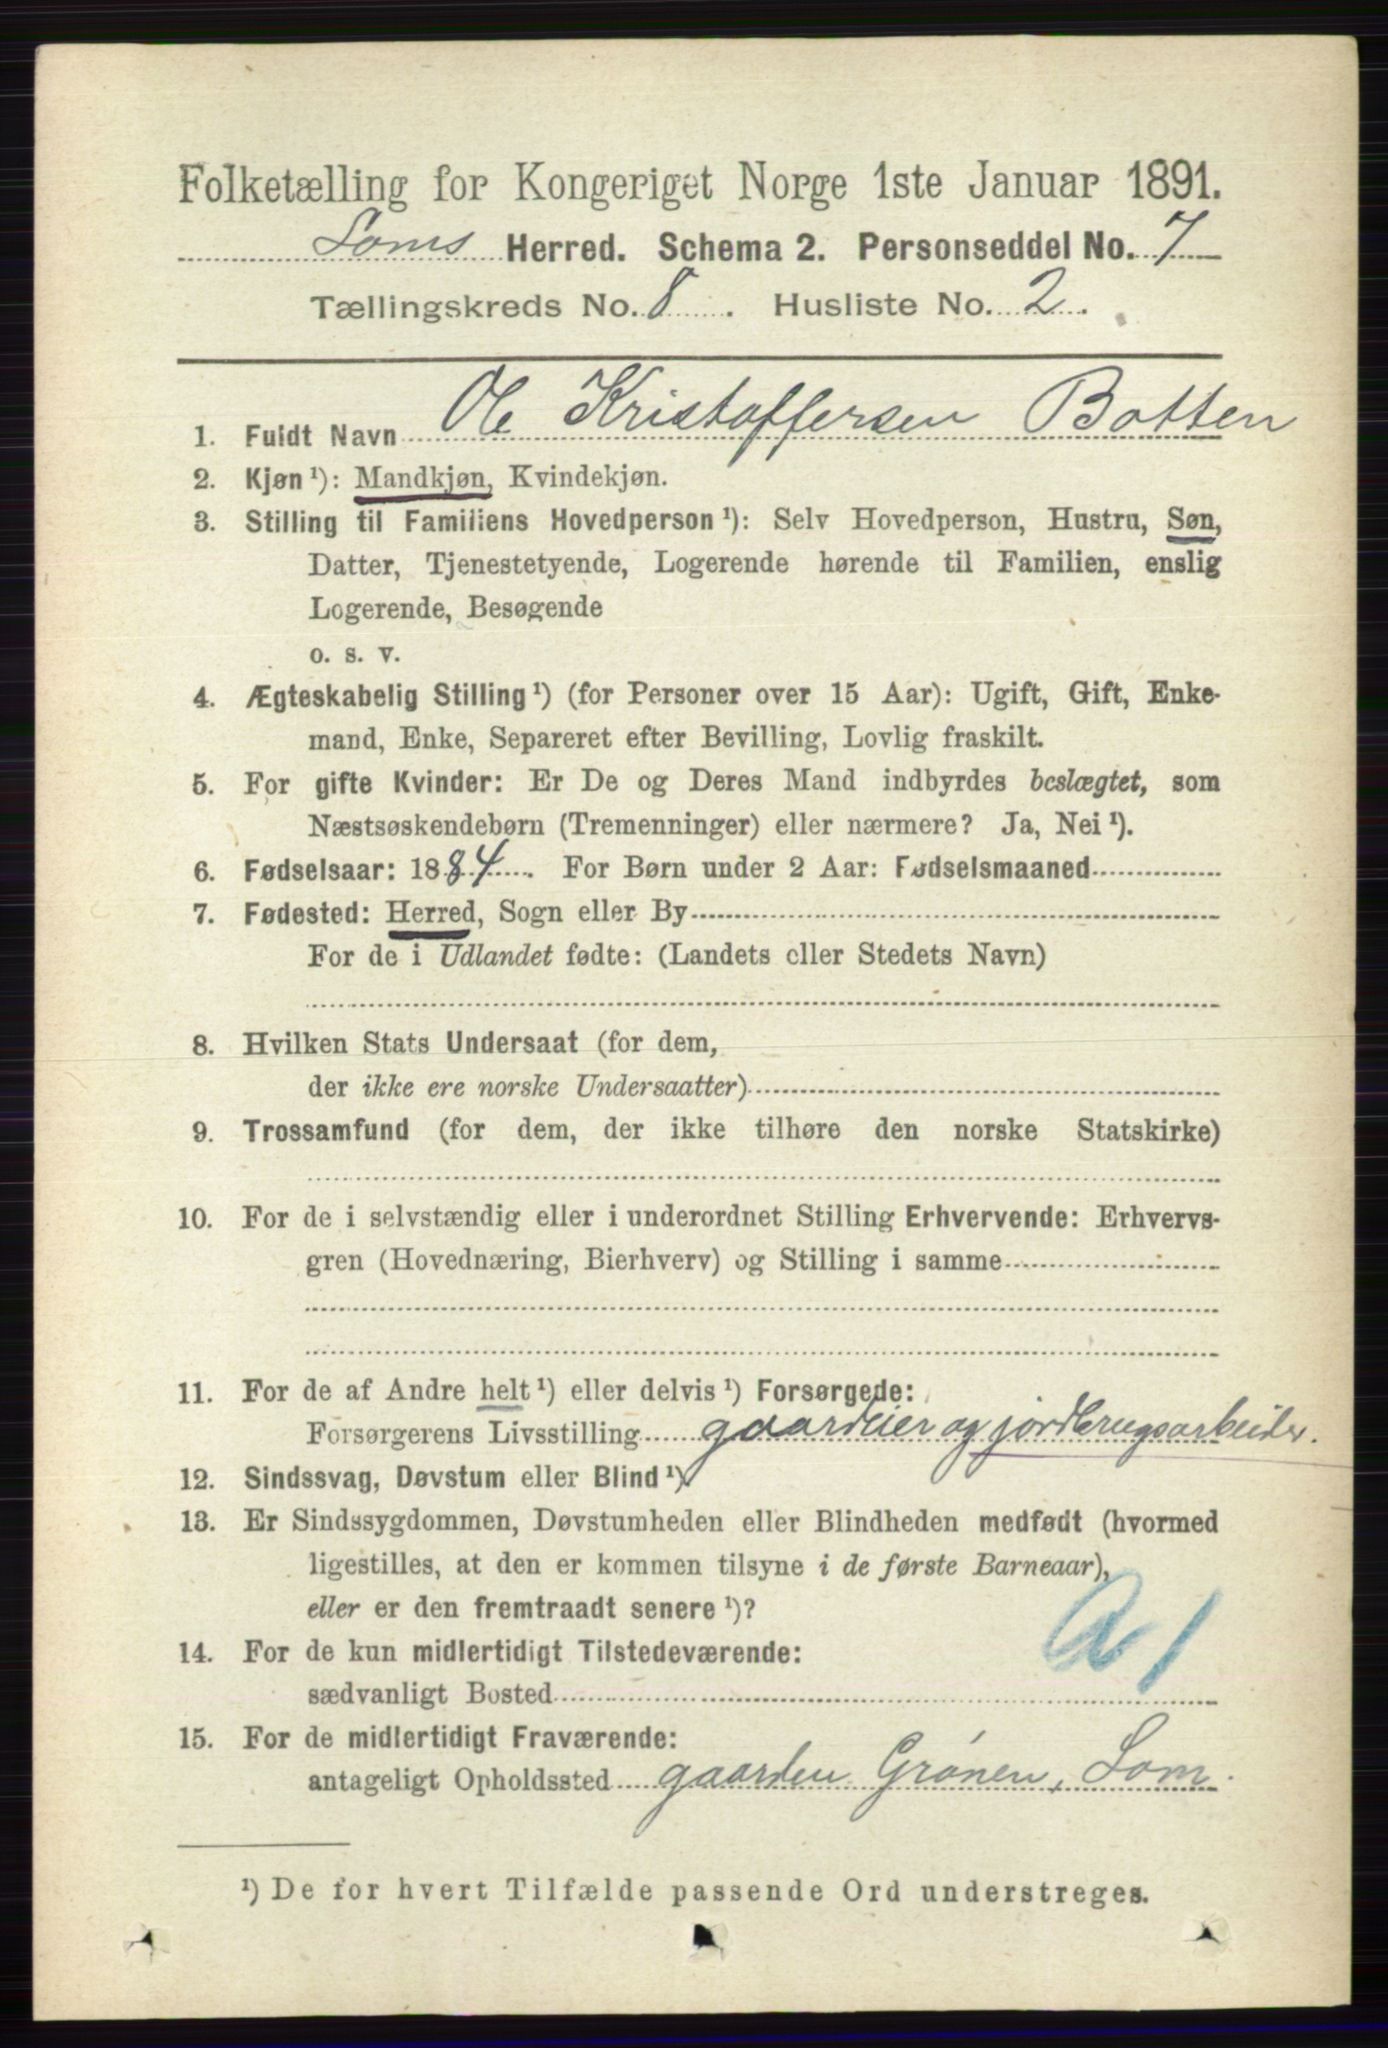 Folketælling for Kongeriget Norge 1ste Januar 1891.
Loms Herred. Schema 2. Personseddel No. 7
Tællingskreds No. 8. Husliste No. 2.
1. Fuldt Navn Ole Kristoffersen Botten
2. Kjøn ¹): Mandkjøn, Kvindekjøn.
3. Stilling til Familiens Hovedperson ¹): Selv Hovedperson, Hustru, Søn,
Datter, Tjenestetyende, Logerende hørende til Familien, enslig
Logerende, Besøgende
o. s. v.
4. Ægteskabelig Stilling ¹) (for Personer over 15 Aar): Ugift, Gift, Enke-
mand, Enke, Separeret efter Bevilling, Lovlig fraskilt.
5. For gifte Kvinder: Er De og Deres Mand indbyrdes beslægtet, som
Næstsøskendebørn (Tremenninger) eller nærmere? Ja, Nei ¹).
6. Fødselsaar: 1884. For Børn under 2 Aar: Fødselsmaaned
7. Fødested: Herred, Sogn eller By
For de i Udlandet fødte: (Landets eller Stedets Navn)
8. Hvilken Stats Undersaat (for dem,
der ikke ere norske Undersaatter)
9. Trossamfund (for dem, der ikke tilhøre den norske Statskirke)
10. For de i selvstændig eller i underordnet Stilling Erhvervende: Erhvervs-
gren (Hovednæring, Bierhverv) og Stilling i samme
11. For de af Andre helt ¹) eller delvis ¹) Forsørgede:
Forsørgerens Livsstilling gaardeier og jordbrugsarbeider.
12. Sindssvag, Døvstum eller Blind ¹).
13. Er Sindssygdommen, Døvstumheden eller Blindheden medfødt (hvormed
ligestilles, at den er kommen tilsyne i de første Barneaar),
eller er den fremtraadt senere ¹)?
14. For de kun midlertidigt Tilstedeværende:
sædvanligt Bosted
15. For de midlertidigt Fraværende:
antageligt Opholdssted gaarden Grønen, Lom.
¹) De for hvert Tilfælde passende Ord understreges.